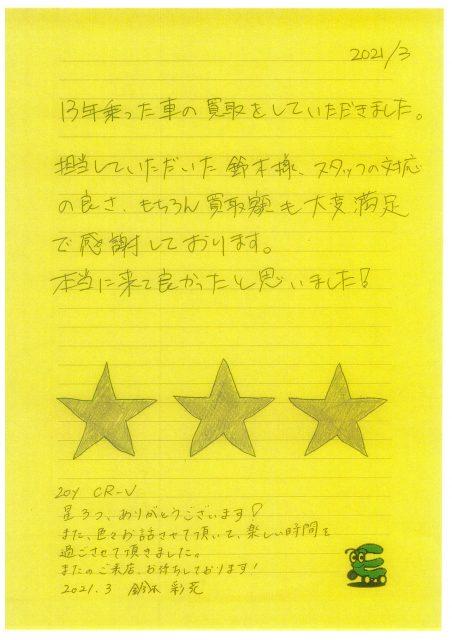 2021/3
13年乗った車の買取をしていただきました。
担当していただいた鈴木様、スタッフの対応
の良さ、もちろん買取額も大変満足
で感謝しております。
本当に来て良かったと思いました!
20Y CR-V
星3つ、ありがとうございます!
また、色々お話させて頂いて、楽しい時間を
過ごさせて頂きました。
またのご来店、お待ちしております!
2021.3 鈴木 彩花